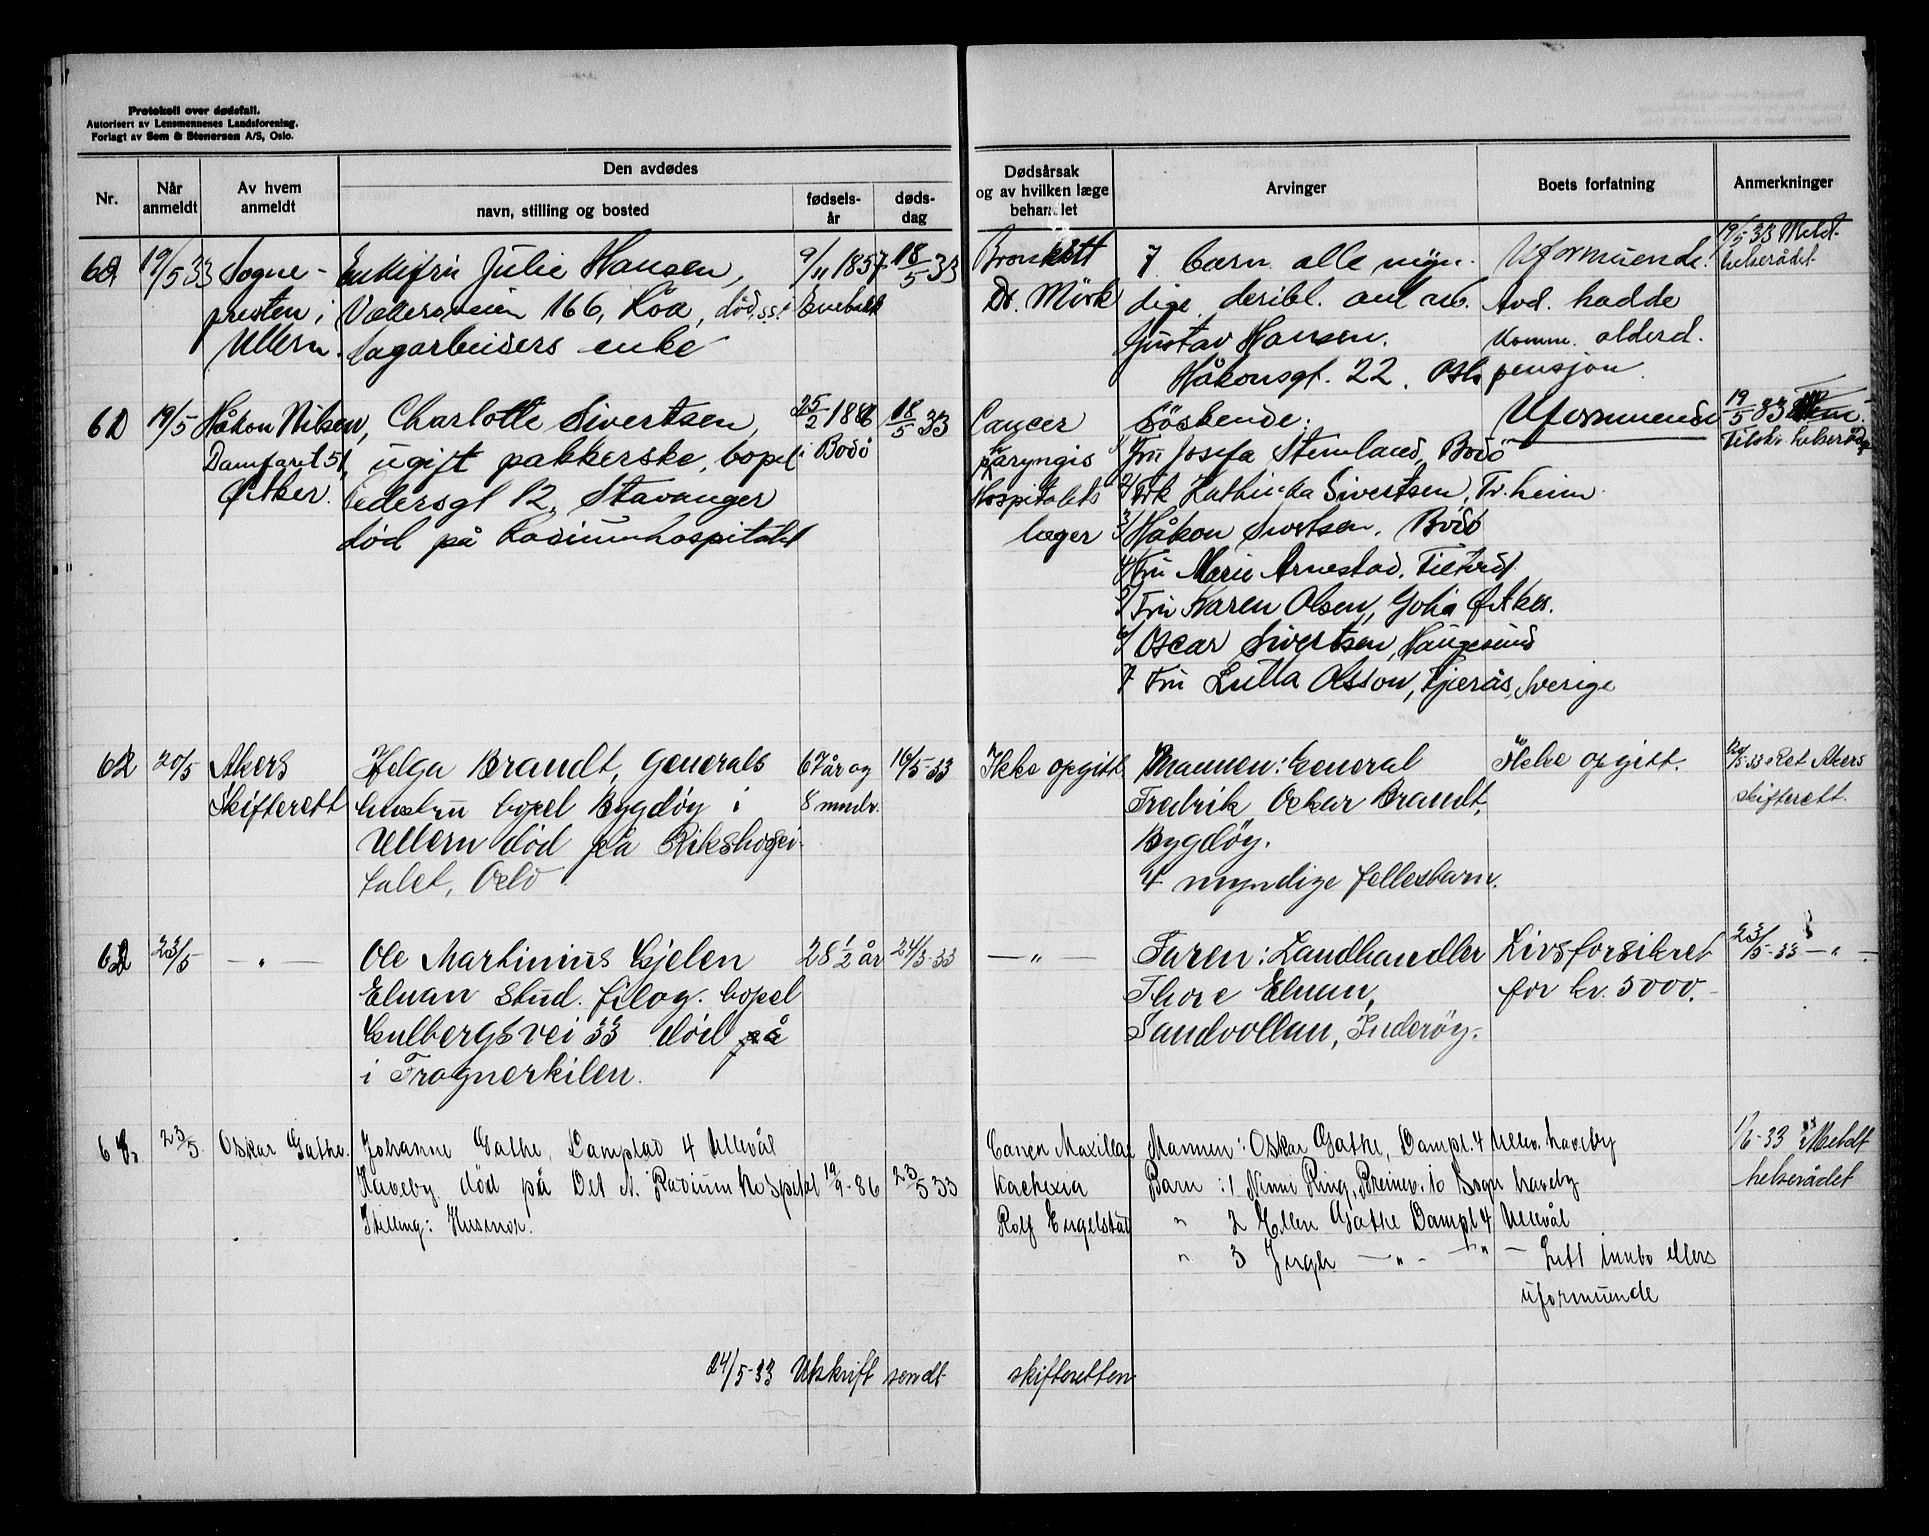 Protokoll over dødsfall.
Autorisert av Lensmennenes Landsforening.
Forlagt av Sem & Stenersen A/S, Oslo.
Nr.
Når anmeldt
Av hvem anmeldt
Den avdødes
navn, stilling og bosted
fødsels-år
døds-dag
Dødsårsak og av hvilken læge behandlet
Arvinger
Boets forfatning
Anmerkninger
19/5 33 Sogne-
presten i
Ullern.
Enkefru Julie Hansen,
166, Röa, død sst.
enke
9/11 1857
Enebakk
18/5 33
Bronkitt
Dr. Mörk
7 barn alle myn-
dige, deribl. anl. arb.
Gustav Hansen.
Håkonsgt. 22. Oslo
Uformuende.
Avd. hadde
komm. alderd.
pensjon.
19/5 33 Meldt
helserådet
19/5 Håkon Nilsen,
Damfaret 51,
Ö. Aker.
Charlotte Sivertsen,
ugift pakkerske, bopel
Pedersgt 12, Stavanger
död på Radiumhospitalet
25/2 1886
i Bodö
18/5 33
Cancer
laryngis
Hospitalets
læger
Söskende:
1/ Fru Josefa Stemland, Bodö
2/ Frk Sivertsen, Tr.heim.
3/ Håkon Sivertsen, Bodö
4/ Fru Marie Arnestad,
5/ Fru Karen Olsen, Ö. Aker.
6/ Oscar Sivertsen, Haugesund
7 Fru Olsson, Fjerås, Sverige
Uformuende
19/5 33
Tilskr. helserådet
62 20/5 Akers
Skifterett
Helga Brandt, Generals
hustru bopel Bygdøy i
Ullern død på Rikshospi-
talet, Oslo
67 år og
8 mndr.
16/5-33
Ikke opgitt
Mannen: General
Fredrik Oskar Brandt,
Bygdöy.
4 myndige fellesbarn.
Ikke opgitt.
20/5-33 Ret Akers
skifterett.
23/5 — " —
Ole Martinius Gjelen
Elnan stud. filog. bopel
Gulbergsvei 33 död på
i Frognerkilen.
28 1/2 år
24/3-33
— " —
Faren: Landhandler
Thore Elnan,
Sandvollan, Inderöy.
Livsforsikret
for kr. 5000.-
23/5-33 — " —
23/5. Oskar Gathe.
Johanne Gathe, Damplad 4 Ullevål
Haveby død på Det N. Radium hospital
Stilling: Husmor.
19/9-86
23/5 33
Cancer Maxillae
Kachexia
Rolf Engelstad
Mannen: Oskar Gathe, Dampl. 4 Ullev. haveby
Barn: 1 Ninni Ring, 10 Sogn haveby
" 2 Ellen Gathe Dampl 4 Ullevål
" 3 Inger — " — " — Litt innbo ellers
uformuende
1/6-33 Meldt
helserådet
24/5-33 Utskrift sendt skifteretten